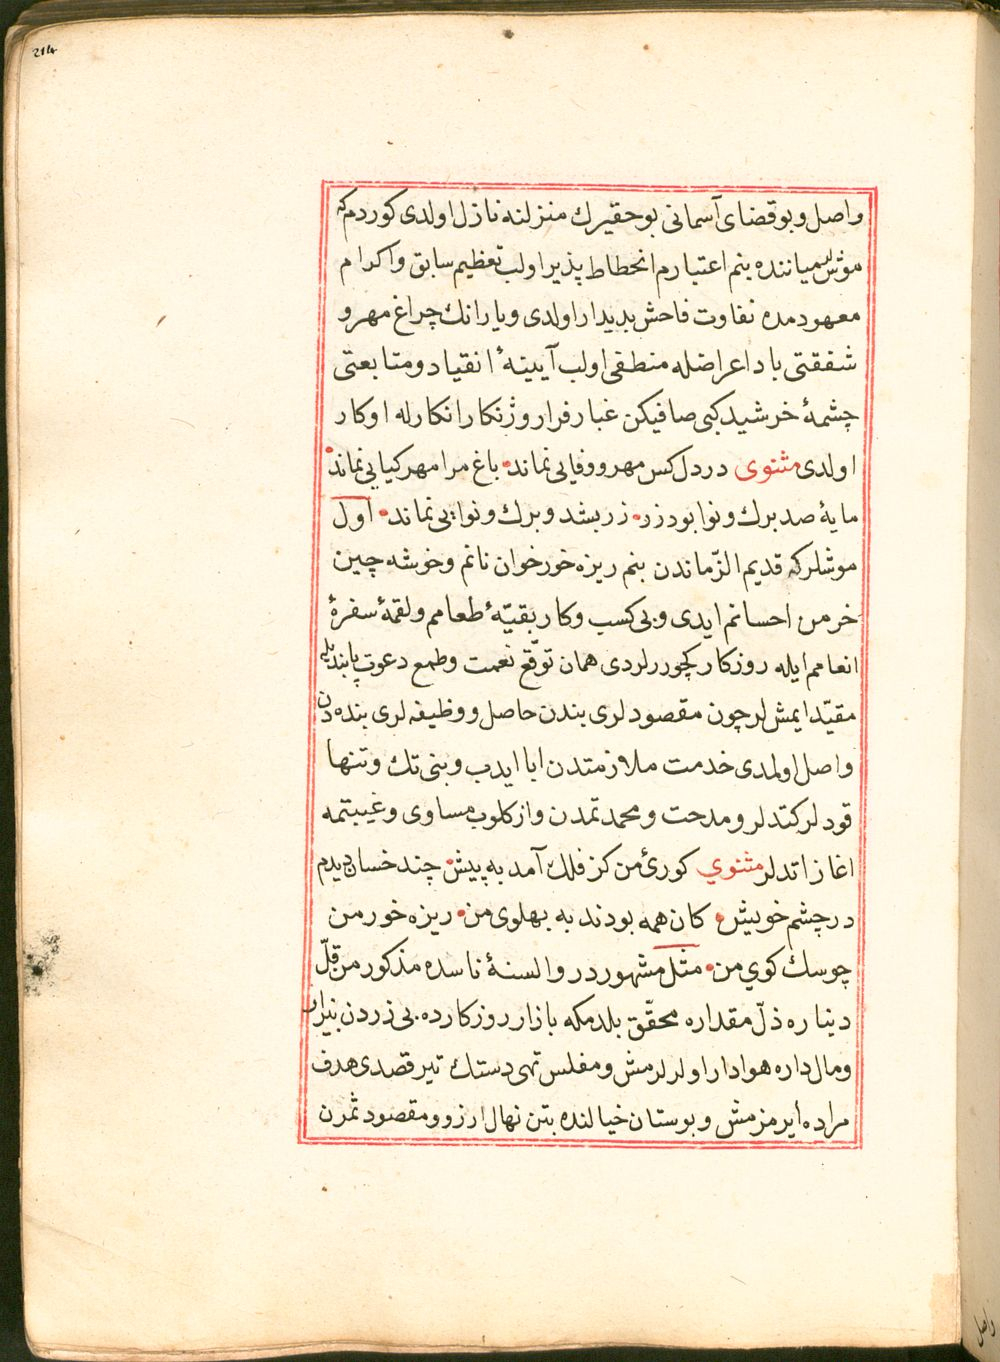 214
واصل و بو قضای آسمانی بو حقیرك منزلنه نازل اولدی كوردم كه
موشلر میاننده بنم اعتبارم انحطاط پذیر اولب تعظیم سابق و اكرام
معهودمده تفاوت فاحش بدیدار اولدی و یارانك چراغ مهر و
شفقتی باد اعراضله منطفی اولب آیینهٔ انقیاد و متابعتی
چشمهٔ خرشید كبی صافیكن غبار فرار و ژنكار انكارله اوكار
اولدی مثنوی در دل كس مهر و وفایی نماند باغ مرا مهر كیایی نماند
مایهٔ صد برك و نوا بود زر زر بشد و برك و نوایی نماند اول
موشلر كه قدیم الزّماندن بنم ریزه خور خوان نانم و خوشه چین
خرمن احسانم ایدی و بی كسب و كار بقیّهٔ طعامم و لقمهٔ سفرهٔ
انعامم ایله روزكار كچوررلردی همان توقّع نعمت و طمع دعوت پابندیله
مقیّد ایمش لر چون مقصودلری بندن حاصل و وظیفه لری بنده دن
واصل اولمدی خدمت ملازمتدن ابا ایدب و بنی تك و تنها
قودلر كتدلر و مدحت و محمدتمدن واز كلوب مساوی و غیبتمه
اغاز اتدلر مثنوي كورئ من كز فلك آمد به پیش چند خسان دیدم
در چشم خویش كان همه بودند به پهلوی من ریزه خور من
چو سك كوي من مثل مشهوردر و السنهٔ ناسده مذكور من قلّ
دیناره ذلّ مقداره محقّق بلدمكه بازار روزكارده بی زردن بیزار
و مالداره هوادار اولرلرمش و مفلس تهی دستك تیر قصدی هدف
مراده ایرمزمش و بوستان خیالنده بتن نهال ارزو و مقصود ثمرن
واصل